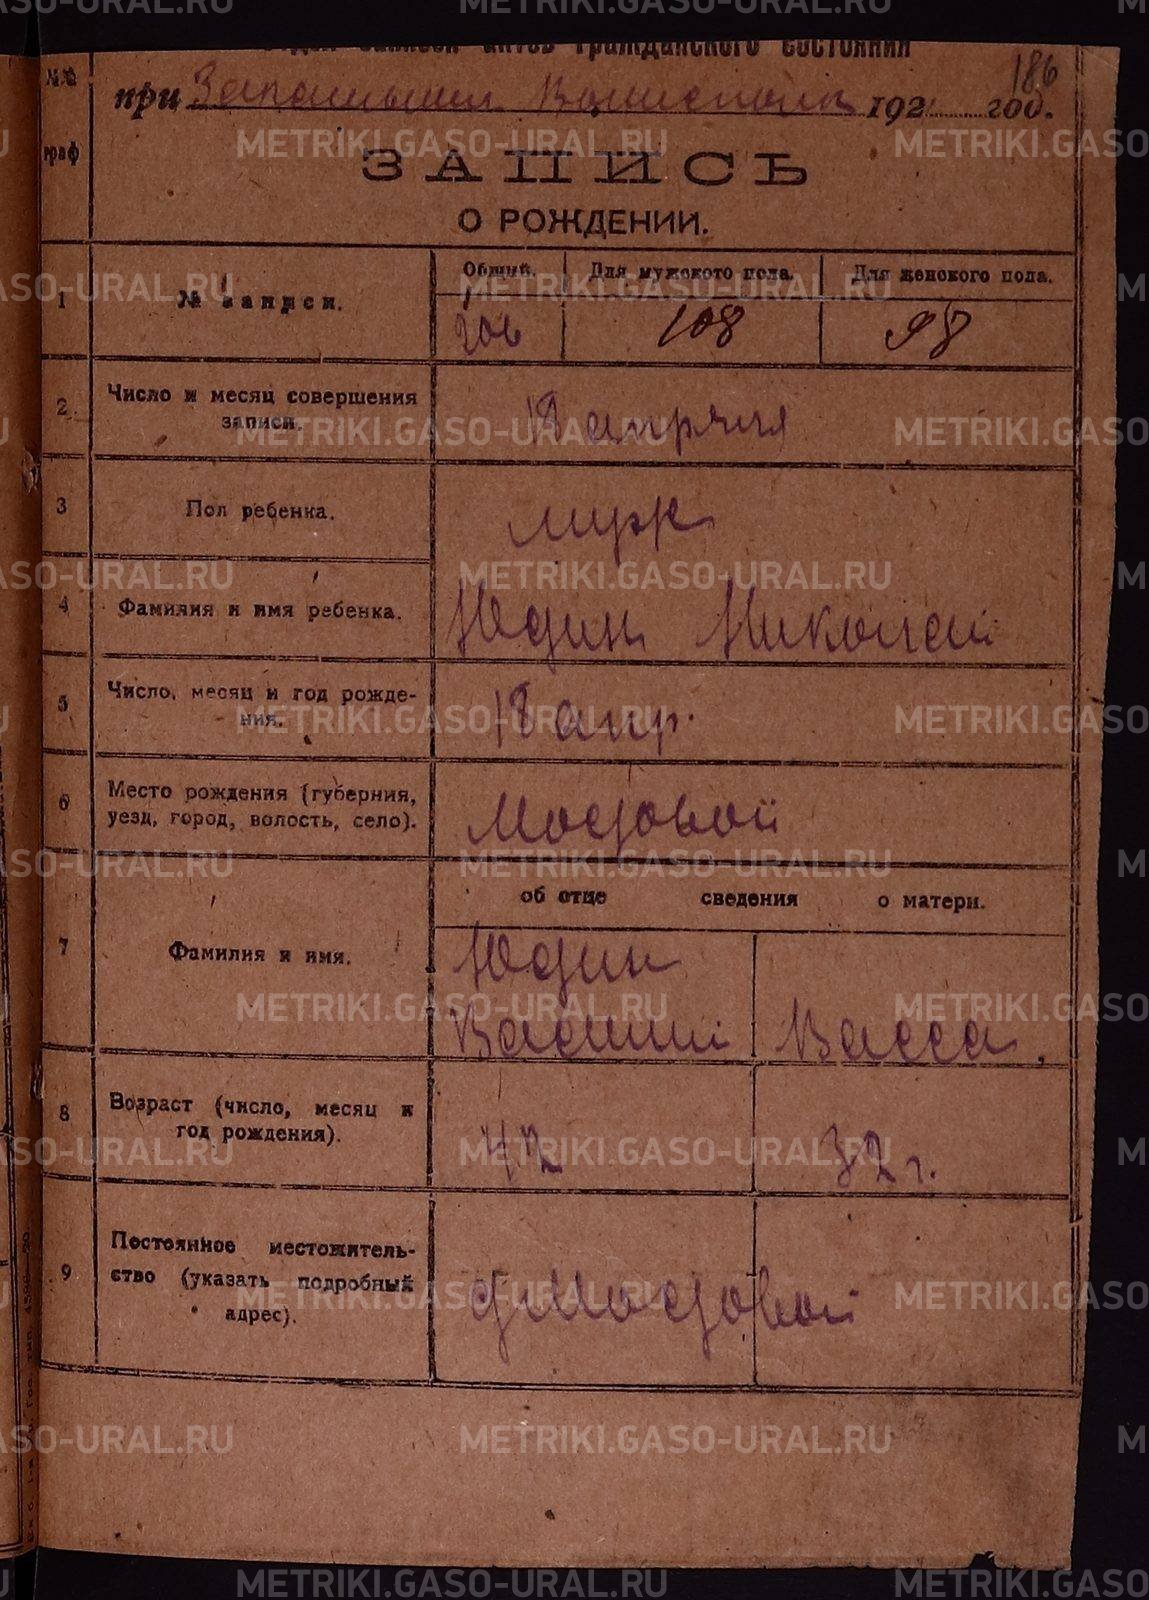 Отдел записей актов гражданского состояния
186
при 192 год.
№№ граф
ЗАПИСЬ
О РОЖДЕНИИ.
1 № записи.
Общий. Для мужского пола. Для женского пола.
206 108 98
2. Число и месяц совершения записи.
18 апреля
3 Пол ребенка.
муж
4 Фамилия и имя ребенка.
Юдин Николай
5 Число, месяц и год рожде-
ния.
18 апр.
6 Место рождения (губерния,
уезд, город, волость, село).
Мосдовой
об отце сведения о матери.
7 Фамилия и имя.
Юдин
Василий Васса.
8 Возраст (число, месяц и
год рождения).
42 32 г.
9 Постоянное местожитель-
ство (указать подробный
адрес).
д Мосдовой
METRIKI.GASO-URAL.RU